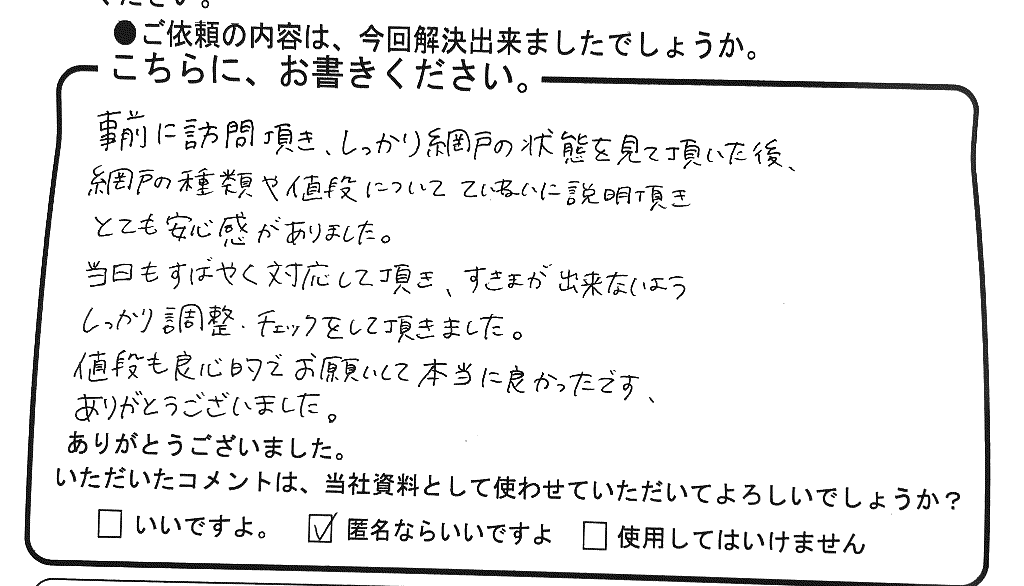 ください。
●ご依頼の内容は、今回解決出来ましたでしょうか。
こちらに、お書きください。
事前に訪問頂き、しっかり網戸の状態を見て頂いた後、
網戸の種類や値段についてていねいに説明頂き
とても安心感がありました。
当日もすばやく対応して頂き、すきまが出来ないよう
しっかり調整・チェックをして頂きました。
値段も良心的でお願いして本当に良かったです、
ありがとうございました。
ありがとうございました。
いただいたコメントは、当社資料として使わせていただいてよろしいでしょうか？
□ いいですよ。 ☑ 匿名ならいいですよ □ 使用してはいけません